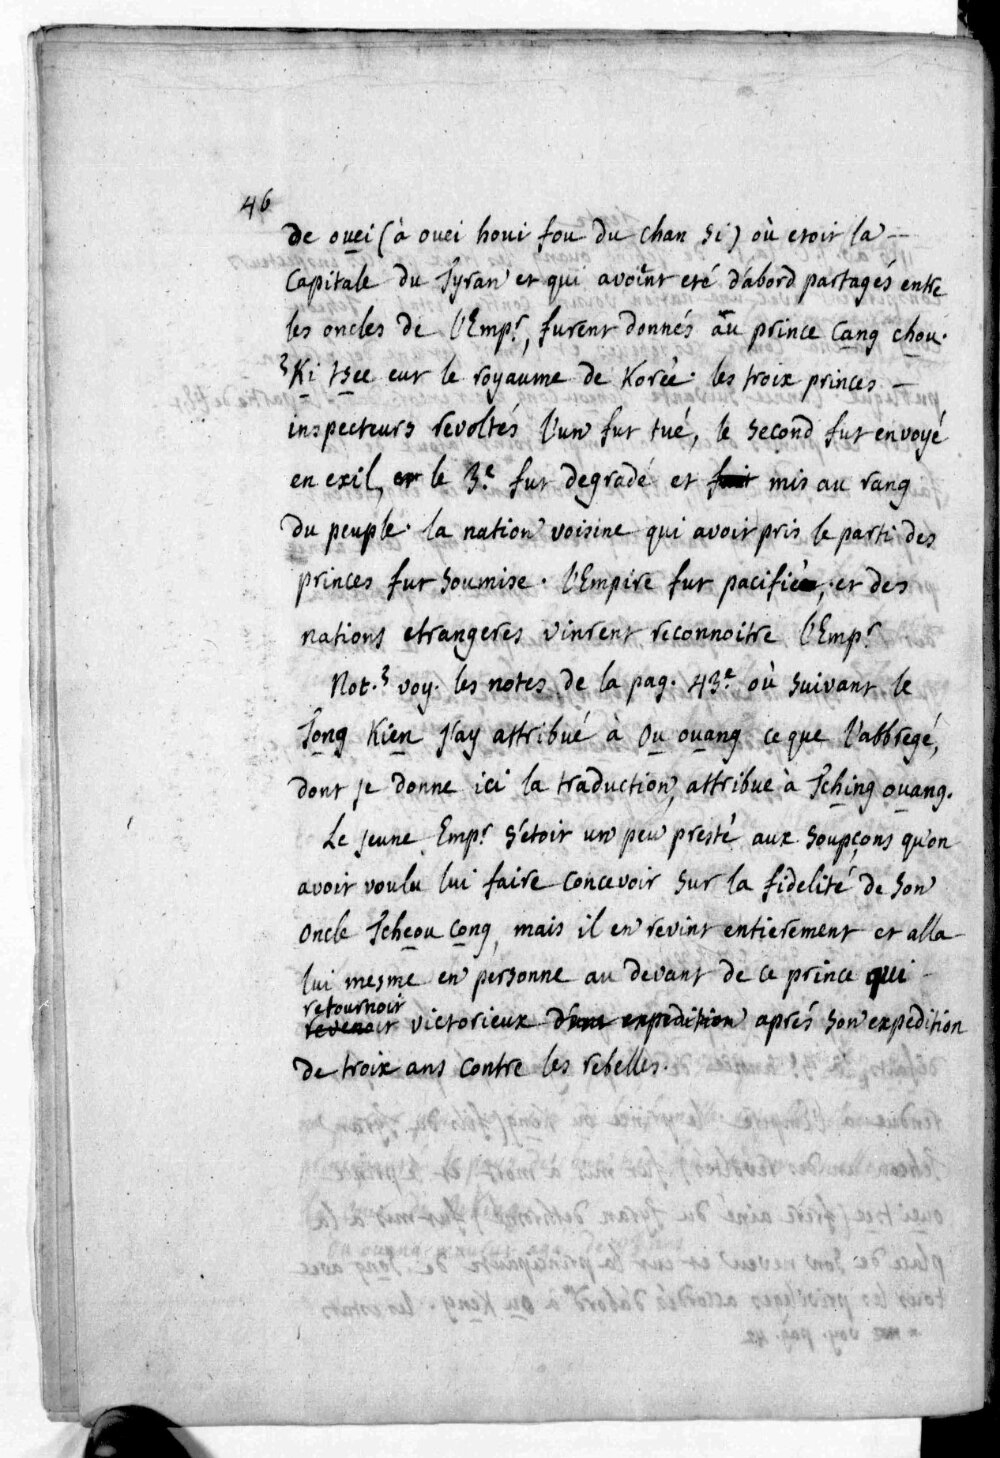 46
de ouei (à ouei houi fou du chan si) où etoit la
capitale du Tyran et qui avoint eté d'abord partagés entre
les oncles de l'Empr, furent donnés au prince Cang chou.
3 Ki tsee eut le royaume de Korée. les troix princes
inspecteurs revoltés l'un fut tué, le second fut envoyé
en exil, et le 3.e fut degradé et fait mis au rang
du peuple. la nation voisine qui avoit pris le parti des
princes fut soumise. l'Empire fut pacifié, et des
nations etrangeres vinrent reconnoitre l'Empr
Not. 3 voy. les notes de la pag. 43.e où suivant le
Tong Kien j'ay attribué à Ou ouang ce que l'abbregé,
dont je donne ici la traduction, attribue à Tching ouang.
Le jeune Empr s'etoit un peu presté aux soupçons qu'on
avoit voulu lui faire concevoir sur la fidelité de son
oncle Tcheou cong, mais il en revint entierement et alla
lui mesme en personne au devant de ce prince qui
retournoit
revenoit victorieux d'une expedition aprés son expedition
de troix ans contre les rebelles.